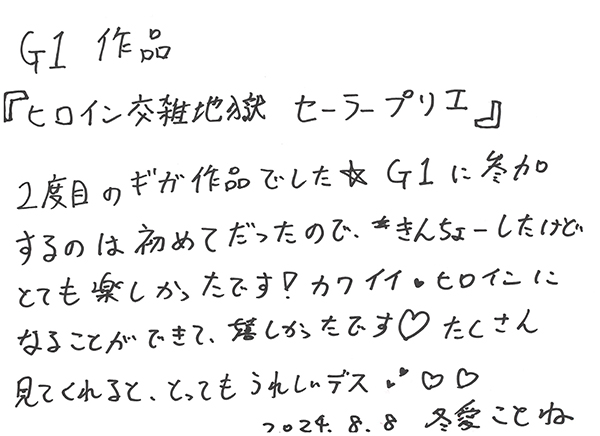 G1 作品
『ヒロイン交雑地獄 セーラープリエ』
2度目のギガ作品でした☆ G1に参加
するのは初めてだったので、きんちょーしたけど
とても楽しかったです!カワイイ♥ヒロインに
なることができて、嬉しかったです♡たくさん
見てくれると、とってもうれしいデス♥♡♡
2024.8.8 冬愛ことね